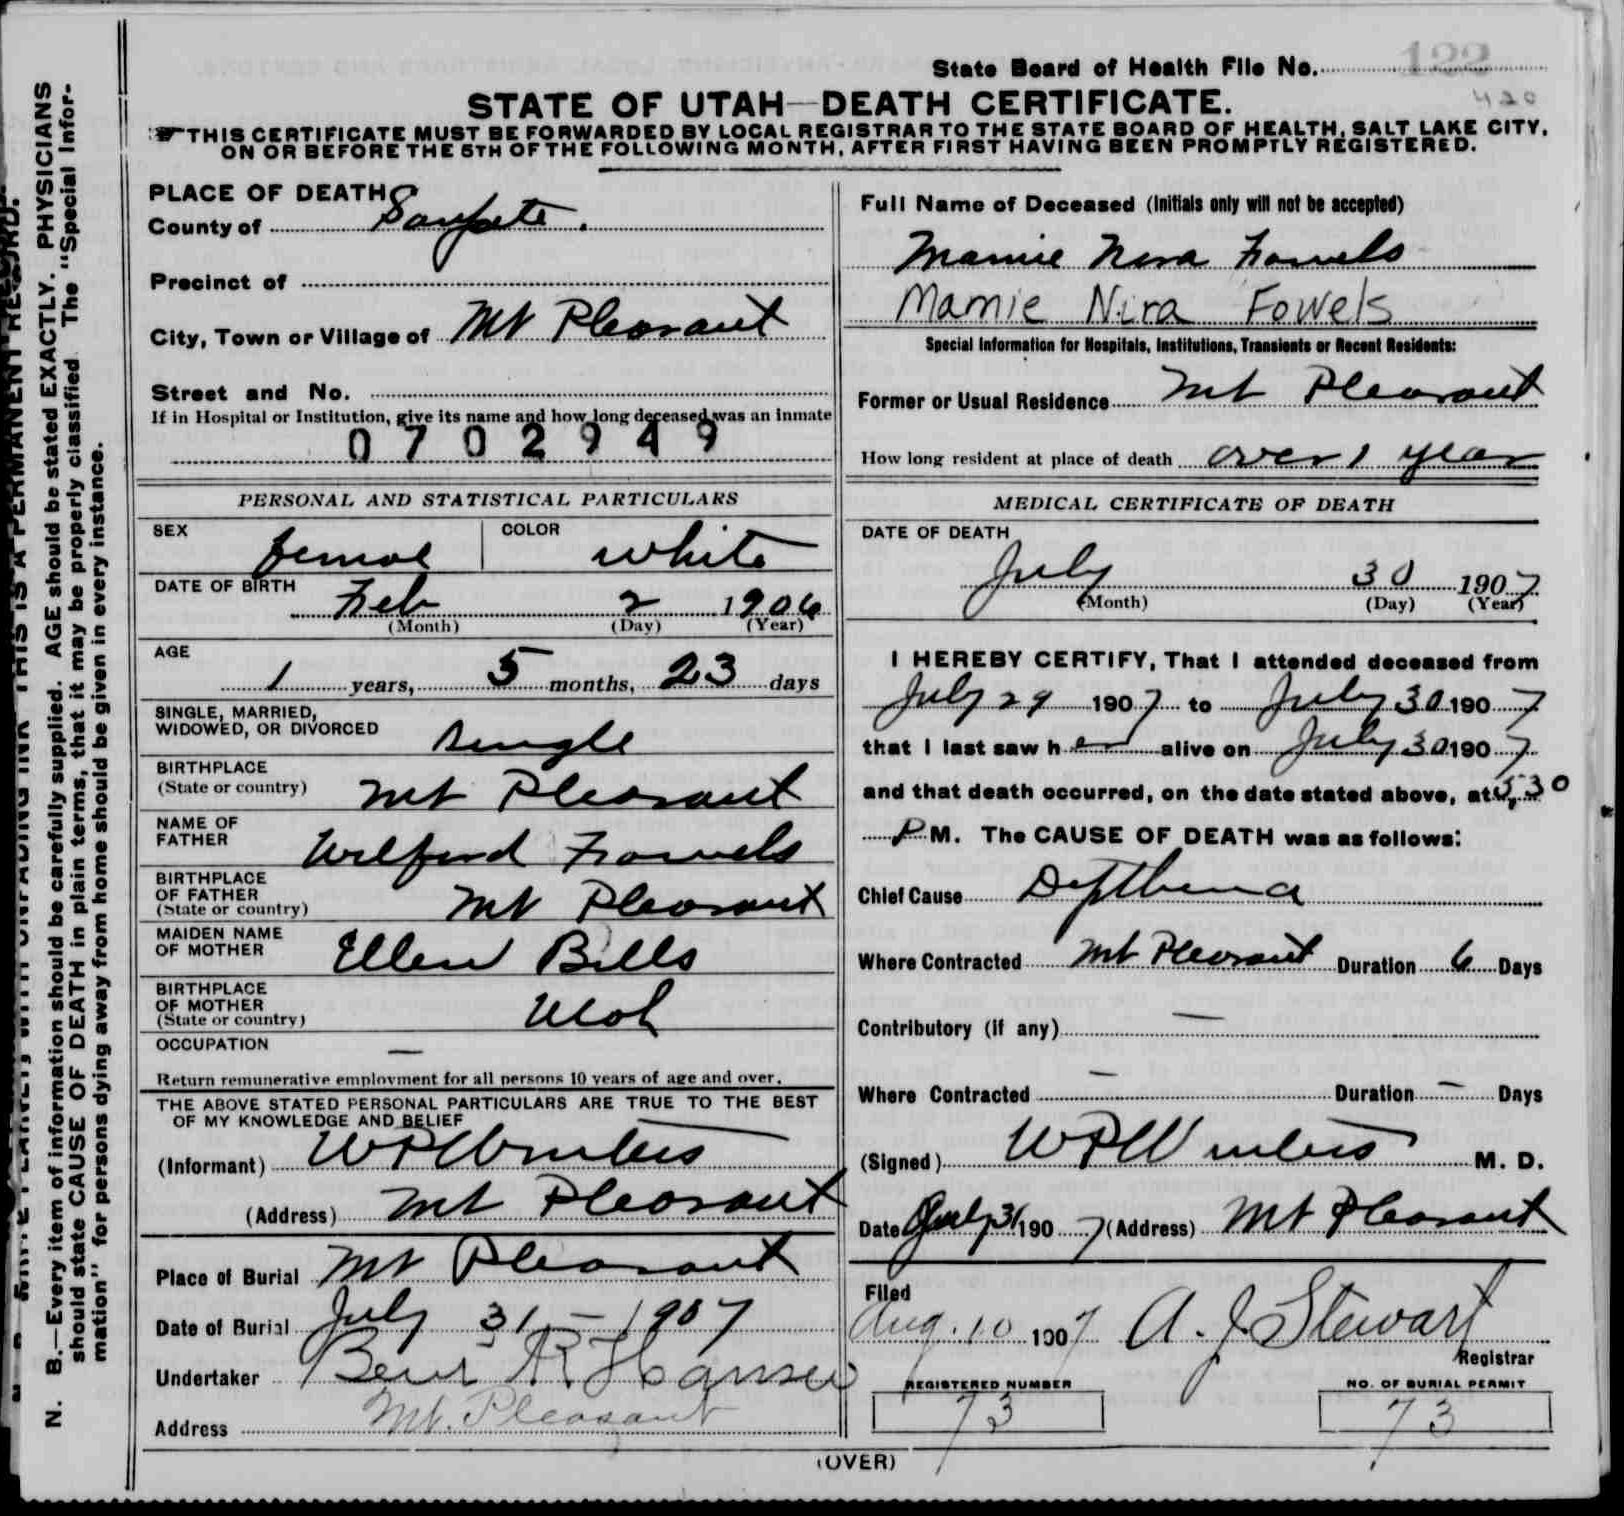 State Board of Health File No. 122
420
STATE OF UTAH—DEATH CERTIFICATE.
THIS CERTIFICATE MUST BE FORWARDED BY LOCAL REGISTRAR TO THE STATE BOARD OF HEALTH, SALT LAKE CITY,
ON OR BEFORE THE 5TH OF THE FOLLOWING MONTH, AFTER FIRST HAVING BEEN PROMPTLY REGISTERED.
N. B.—Every item of information should be carefully supplied. AGE should be stated EXACTLY. PHYSICIANS
should state CAUSE OF DEATH in plain terms, that it may be properly classified. The "Special Infor-
mation" for persons dying away from home should be given in every instance.
PLACE OF DEATH
County of Sanpete.
Precinct of
City, Town or Village of Mt Pleasant
Street and No.
If in Hospital or Institution, give its name and how long deceased was an inmate
0702949
PERSONAL AND STATISTICAL PARTICULARS
SEX femal COLOR white
DATE OF BIRTH
Feb 2 1906
(Month) (Day) (Year)
AGE
1 years, 5 months, 23 days
SINGLE, MARRIED,
WIDOWED, OR DIVORCED single
BIRTHPLACE
(State or country) Mt Pleasant
NAME OF
FATHER Wilford Fowels
BIRTHPLACE
OF FATHER
(State or country) Mt Pleasant
MAIDEN NAME
OF MOTHER Ellen Bills
BIRTHPLACE
OF MOTHER
(State or country) Utah
OCCUPATION —
Return remunerative employment for all persons 10 years of age and over.
THE ABOVE STATED PERSONAL PARTICULARS ARE TRUE TO THE BEST
OF MY KNOWLEDGE AND BELIEF
(Informant) W P Winters
(Address) Mt Pleasant
Place of Burial Mt Pleasant
Date of Burial July 31 - 1907
Undertaker Bent R Hansen
Address Mt. Pleasant
Full Name of Deceased (Initials only will not be accepted)
Mamie Nora Fowels
Mamie Nira Fowels
Special Information for Hospitals, Institutions, Transients or Recent Residents:
Former or Usual Residence Mt Pleasant
How long resident at place of death over 1 year
MEDICAL CERTIFICATE OF DEATH
DATE OF DEATH
July 30 1907
(Month) (Day) (Year)
I HEREBY CERTIFY, That I attended deceased from
July 29 1907 to July 30 1907
that I last saw h er alive on July 30 1907
and that death occurred, on the date stated above, at 5,30
P M. The CAUSE OF DEATH was as follows:
Chief Cause Dyptheria
Where Contracted Mt Pleasant Duration 6 Days
Contributory (if any) —
Where Contracted — Duration — Days
(Signed) W P Winters M. D.
Date July 31 1907 (Address) Mt Pleasant
Filed
Aug. 10 1907 A. J. Stewart
Registrar
REGISTERED NUMBER NO. OF BURIAL PERMIT
73 73
(OVER)